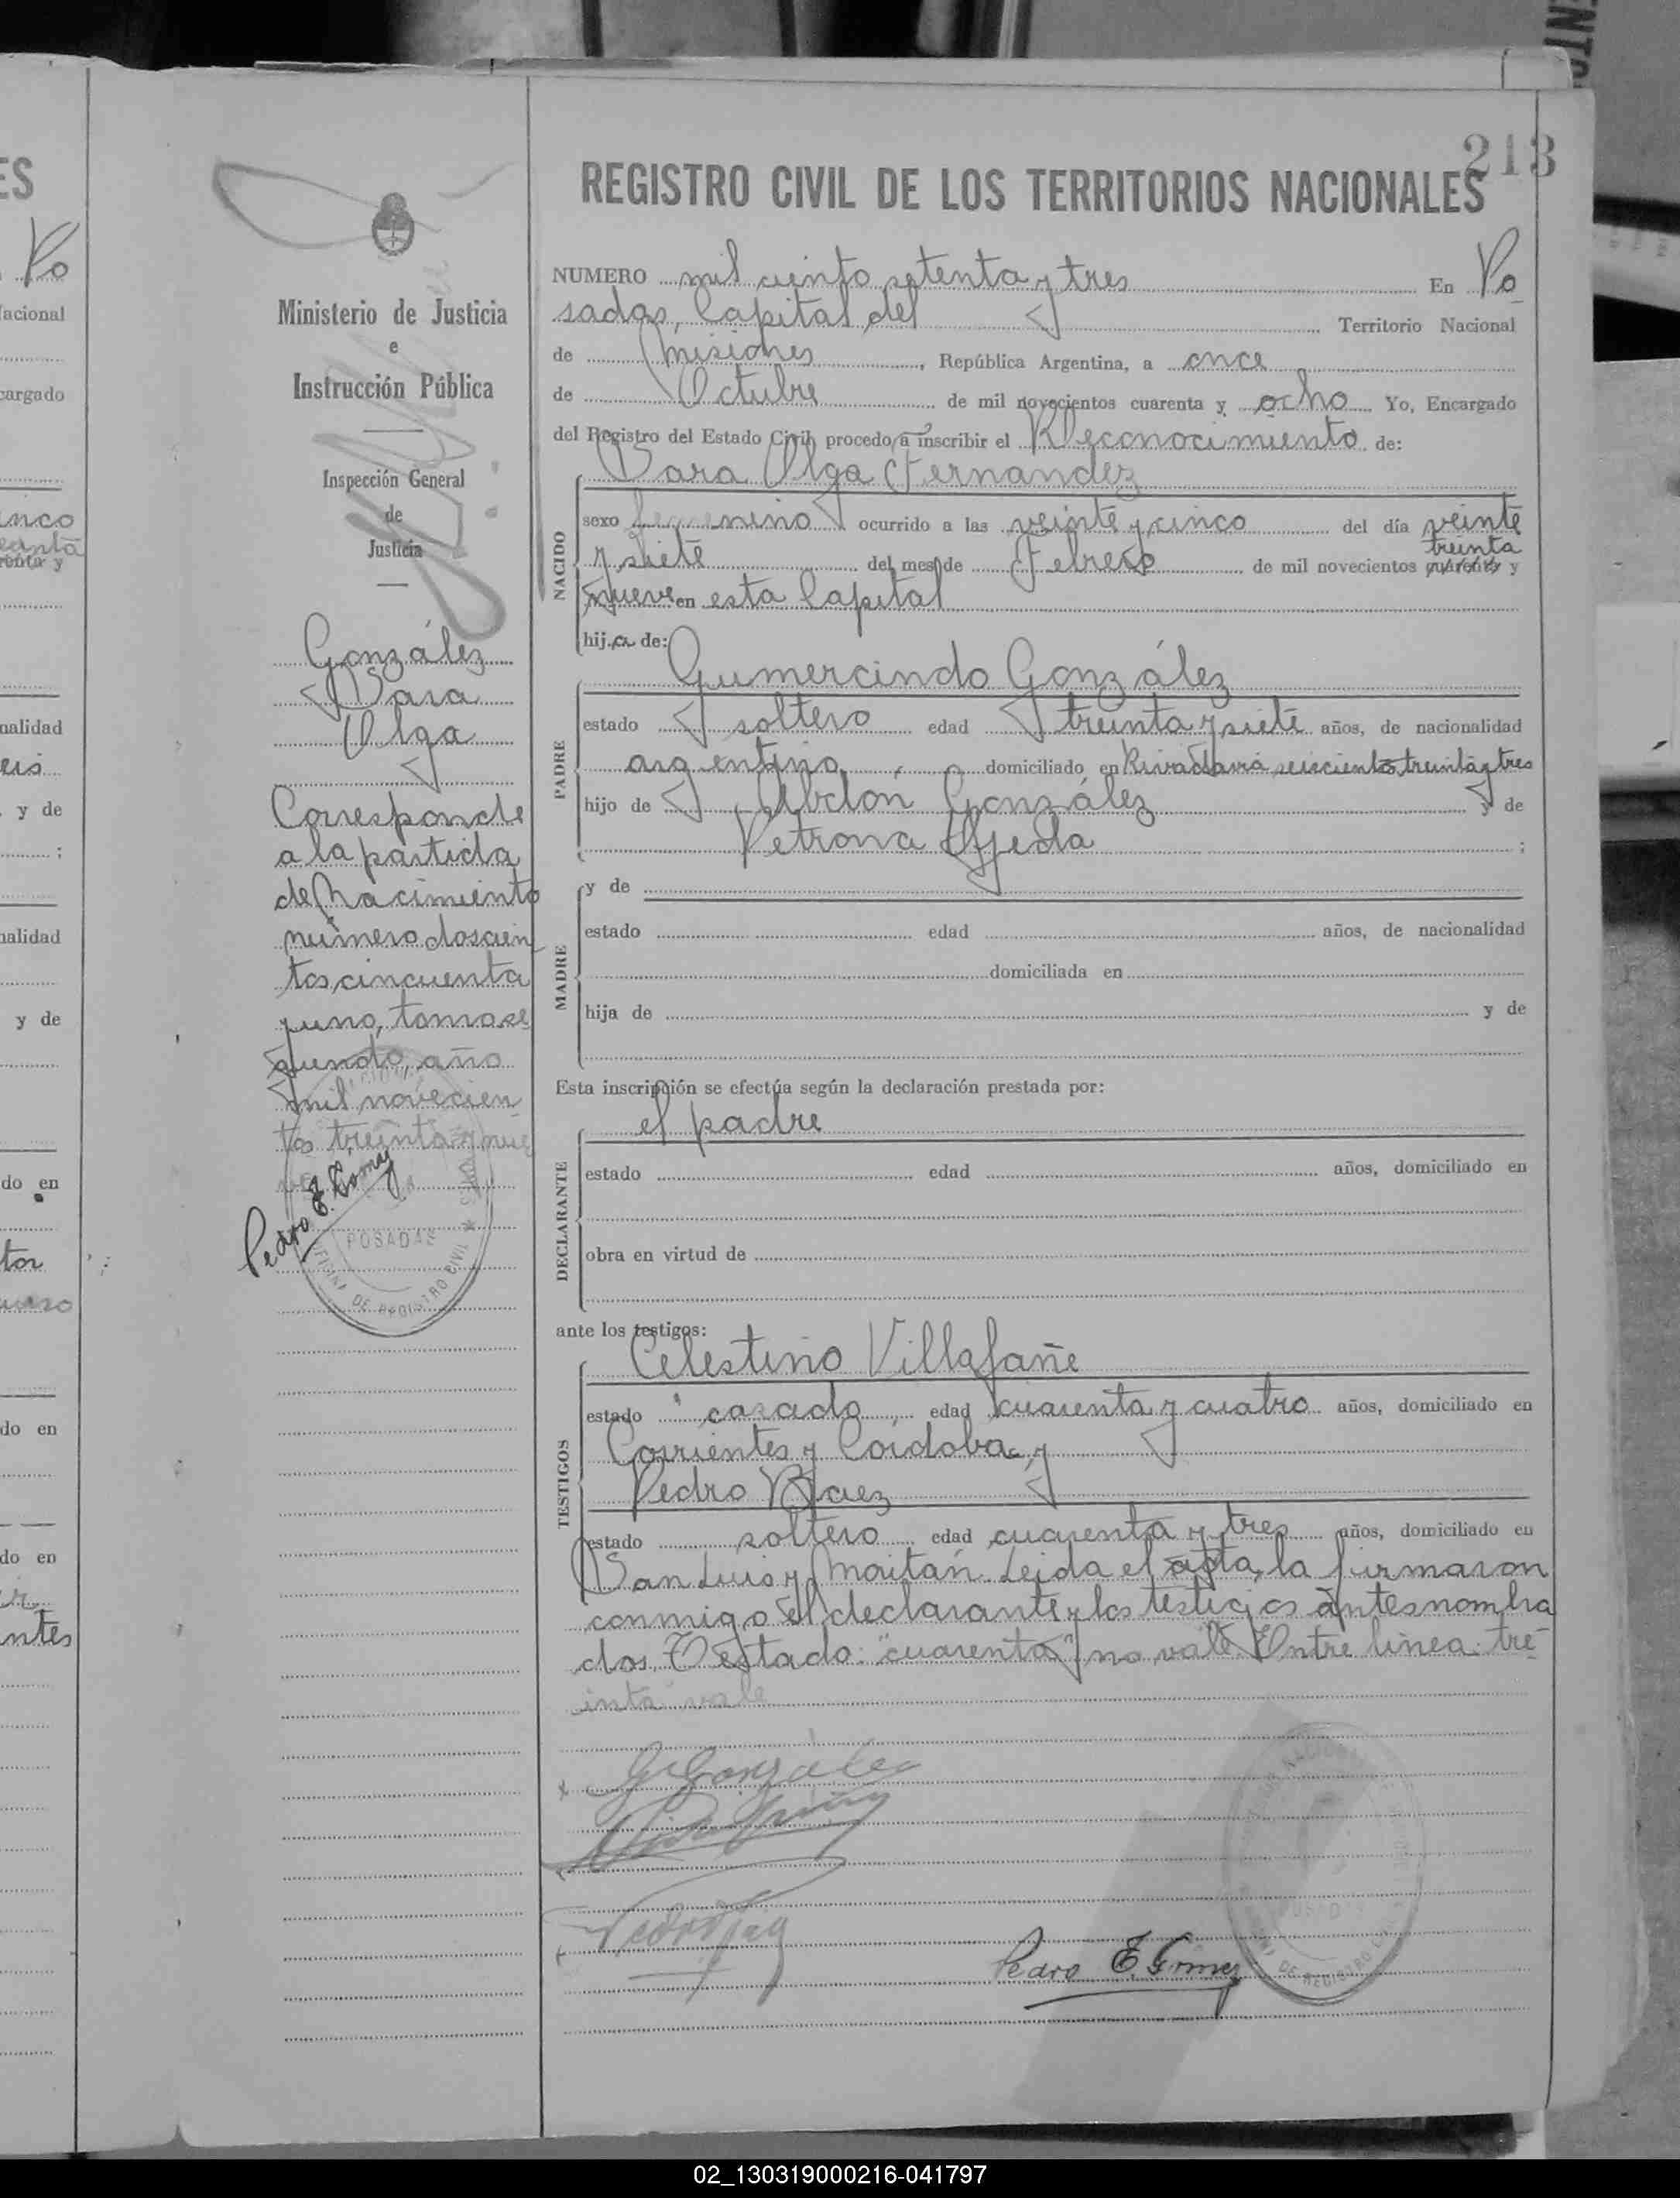 213
REGISTRO CIVIL DE LOS TERRITORIOS NACIONALES
NUMERO mil ciento setenta y tres En Po
sadas, Capital del Territorio Nacional
de Misiones, República Argentina, a once
de Octubre de mil novecientos cuarenta y ocho Yo, Encargado
del Registro del Estado Civil procedo a inscribir el Reconocimiento de:
Sara Olga Fernandez
NACIDO
sexo femenino ocurrido a las veinte y cinco del día veinte
treinta
y siete del mes de Febrero de mil novecientos cuarenta y
nueve en esta Capital
hija de:
Gumercindo González
PADRE
estado soltero edad treinta y siete años, de nacionalidad
argentino domiciliado en Rivadavia seiscientos treinta y tres
hijo de Abdón González y de
Petrona Ojeda ;
y de
MADRE
estado edad años, de nacionalidad
domiciliada en
hija de y de
Esta inscripción se efectúa según la declaración prestada por:
el padre
DECLARANTE
estado edad años, domiciliado en
obra en virtud de
ante los testigos:
Celestino Villafañe
TESTIGOS
estado casado edad cuarenta y cuatro años, domiciliado en
Corrientes y Cordoba, y
Pedro Baez
estado soltero edad cuarenta y tres años, domiciliado en
San Luis y Moitán. Leida el acta, la firmaron
conmigo el declarante y los testigos antes nombra
dos. Testado: "cuarenta" no vale. Entre linea: tre
inta vale
G. González
Pedro Baez
Pedro E. Gómez
Ministerio de Justicia
e
Instrucción Pública
Inspección General
de
Justicia
González
Sara
Olga
Corresponde
a la partida
de Nacimiento
número doscien
tos cincuenta
y uno, tomo se
gundo, año
mil novecien
tos treinta y nue
ve
Pedro E. Gómez
POSADAS
OFICINA DE REGISTRO CIVIL
DE REGISTRO CIVIL
ES
Po
Nacional
cargado
inco
nalidad
y de
;
nalidad
y de
do en
tor
do en
do en
ntes
02_130319000216-041797